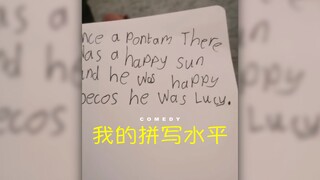 nce a Pontam There
was a happy sun
and he was happy
becos he was Lucy.
COMEDY
我的拼写水平